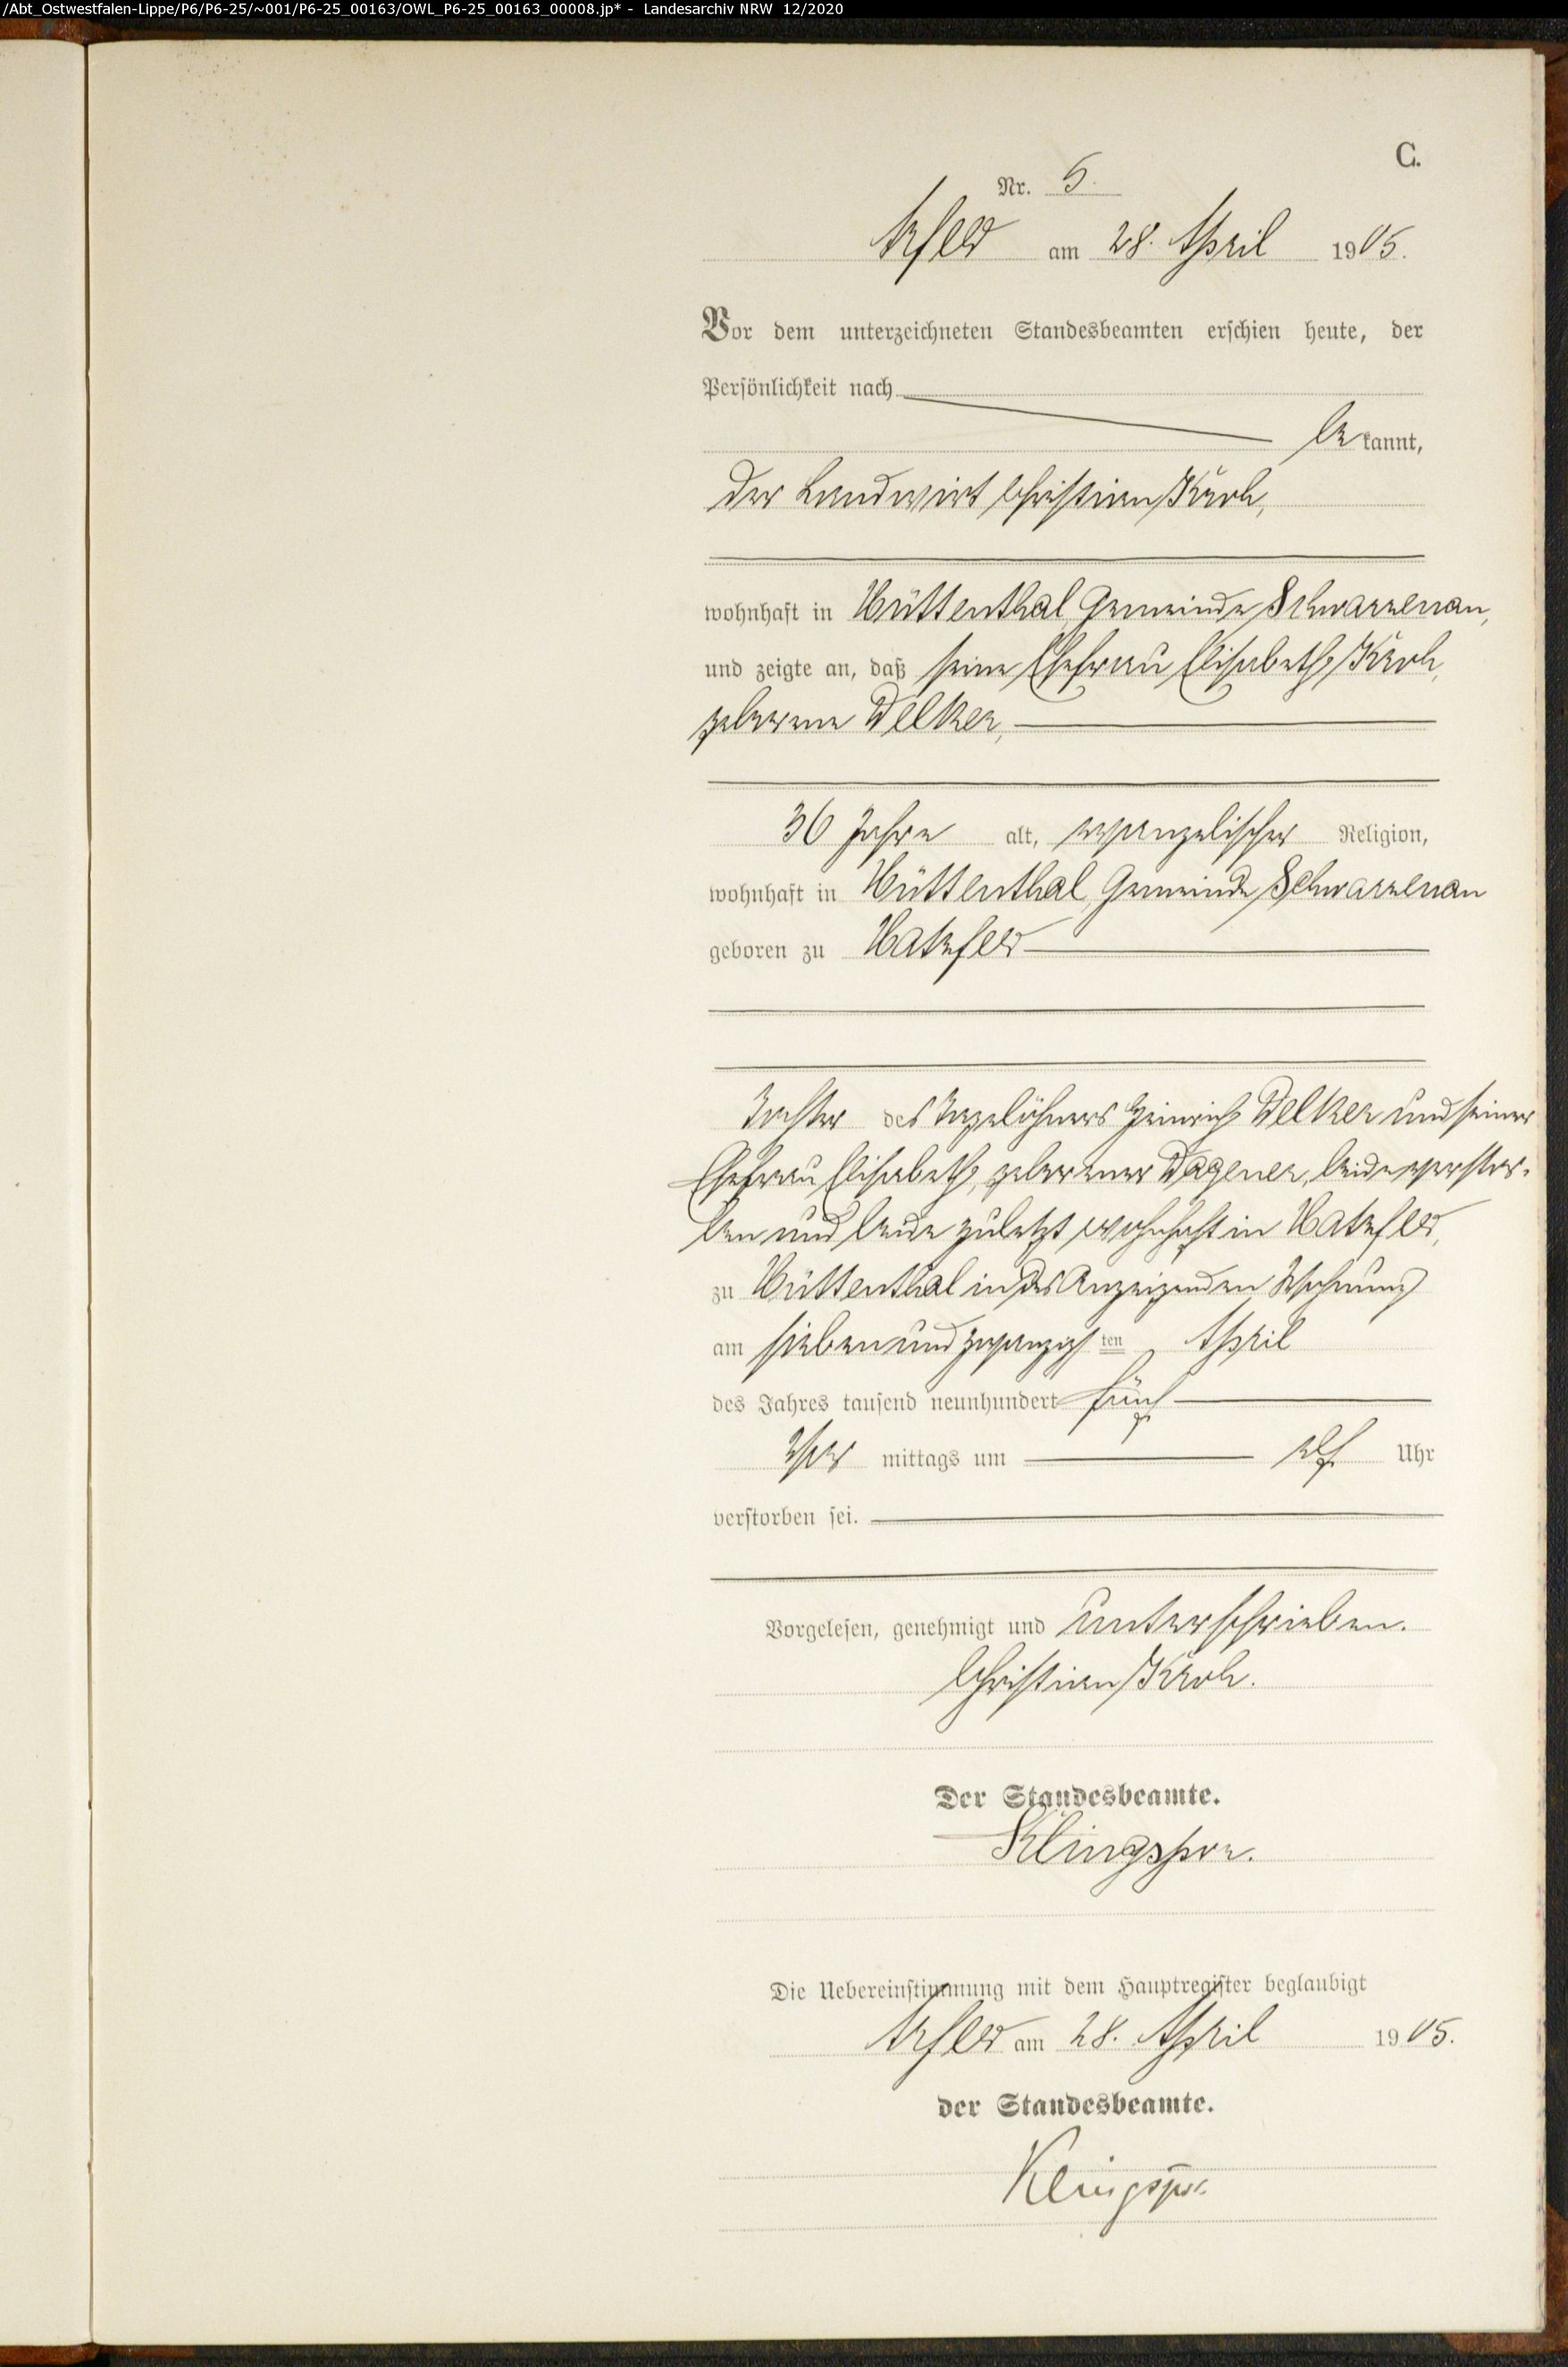 /Abt_Ostwestfalen-Lippe/P6/P6-25/~001/P6-25_00163/OWL_P6-25_00163_00008.jp* - Landesarchiv NRW 12/2020
C.
Nr. 5.
Arfeld am 28. April 1905.
Vor dem unterzeichneten Standesbeamten erschien heute, der
Persönlichkeit nach
bekannt,
der Landwirt Christian Kroh,
wohnhaft in Hüttenthal, Gemeinde Schwarzenau,
und zeigte an, daß seine Ehefrau Elisabeth Kroh,
geborene Welker,
36 Jahre alt, evangelischer Religion,
wohnhaft in Hüttenthal, Gemeinde Schwarzenau
geboren zu Hatzfeld
Tochter des Tagelöhners Heinrich Welker und seiner
Ehefrau Elisabeth, geborener Wagener, beide verstor-
ben und beide zuletzt wohnhaft in Hatzfeld,
zu Hüttenthal in des Anzeigenden Wohnung
am siebenundzwanzigten April
des Jahres tausend neunhundert fünf
Vor mittags um elf Uhr
verstorben sei.
Vorgelesen, genehmigt und unterschrieben.
Christian Kroh.
Der Standesbeamte.
Klingspor.
Die Uebereinstimmung mit dem Hauptregister beglaubigt
Arfeld am 28. April 1905.
der Standesbeamte.
Klingspor.